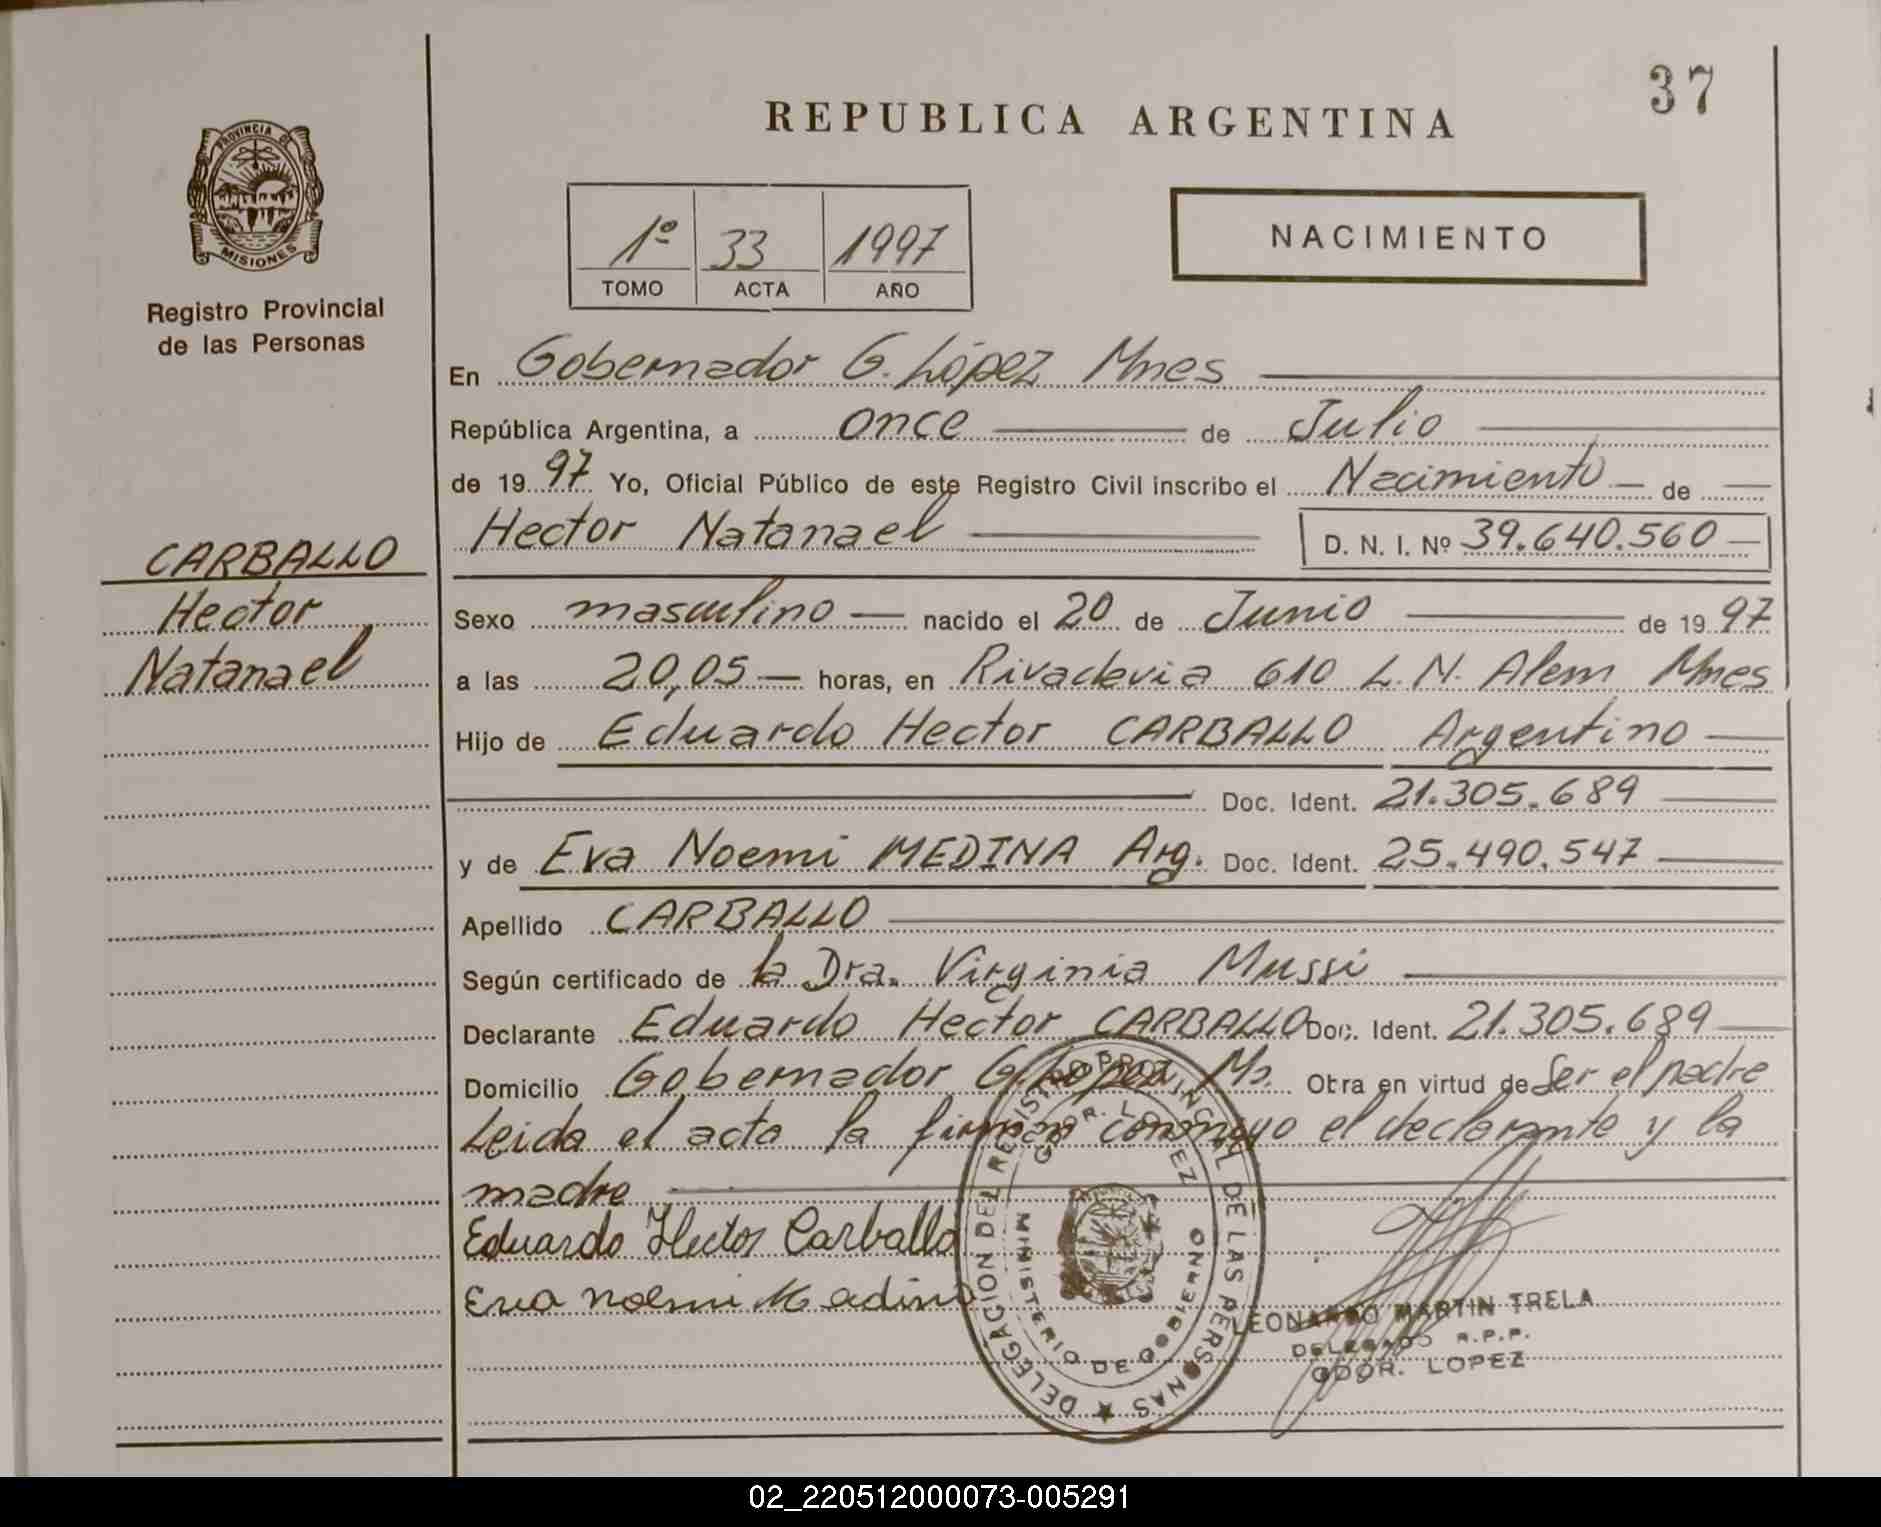 37
REPUBLICA ARGENTINA
PROVINCIA DE
MISIONES
Registro Provincial
de las Personas
1º 33 1997
TOMO ACTA AÑO
NACIMIENTO
En Gobernador G. López Mnes
República Argentina, a once de Julio
de 1997 Yo, Oficial Público de este Registro Civil inscribo el Nacimiento de
Hector Natanael D. N. I. Nº 39.640.560
CARBALLO
Hector
Natanael
Sexo masculino nacido el 20 de Junio de 1997
a las 20,05 horas, en Rivadavia 610 L. N. Alem Mnes
Hijo de Eduardo Hector CARBALLO Argentino
Doc. Ident. 21.305.689
y de Eva Noemi MEDINA Arg. Doc. Ident. 25.490.547
Apellido CARBALLO
Según certificado de la Dra. Virginia Mussi
Declarante Eduardo Hector CARBALLO Doc. Ident. 21.305.689
Domicilio Gobernador G. Lopez, Ms. Obra en virtud de Ser el padre
Leida el acta la firman conmigo el declarante y la
madre
Eduardo Hector Carballo
Eva noemi Medina
DELEGACION DEL REGISTRO PROVINCIAL DE LAS PERSONAS
GDOR. LOPEZ
MINISTERIO DE GOBIERNO
LEONARDO MARTIN TRELA
DELEGADO R.P.P.
GDOR. LOPEZ
02_220512000073-005291